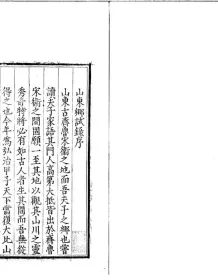 山東鄉試錄序
山東古齊魯宋衛之地而吾夫子之鄉也嘗
讀夫子家語其門人高第大抵皆出於齊魯
宋衛之間固願一至其地以觀其山川之靈
秀奇特將必有如古人者生其間而吾無從
得之也今年為弘治甲子天下當復大比山